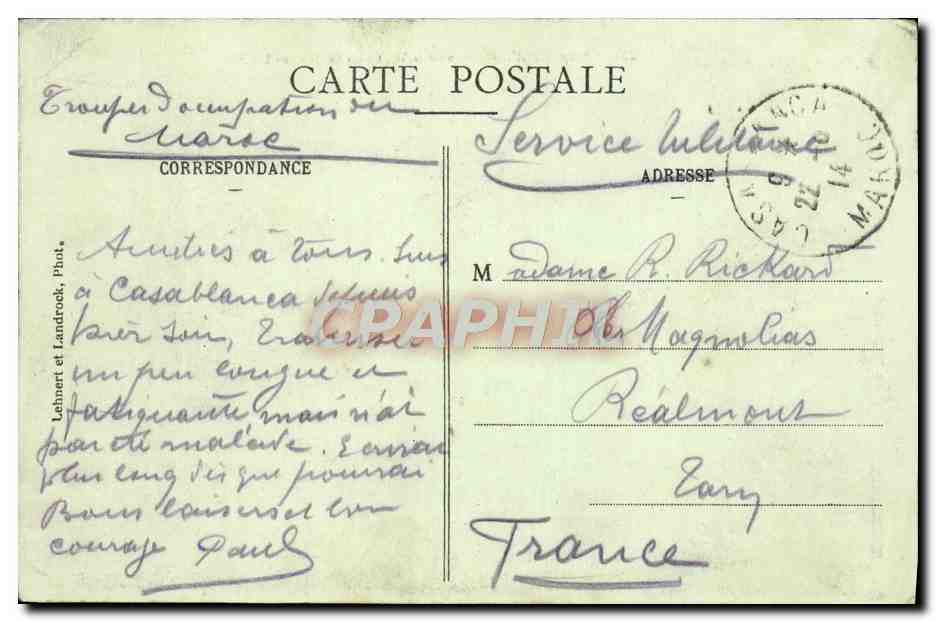 CARTE POSTALE
Troupes d'occupation du
Maroc
Service Militaire
CORRESPONDANCE
ADRESSE
CASABLANCA MAROC
9
22
14
à tous. Suis
à Casablanca depuis
hier soir, Traversée
un peu longue et
fatiguante mais n'ai
pas été malade. Ecrirai
plus long dès que pourrai
Bons baisers et bon
courage Paul
Madame R. Rickard
Les Magnolias
Réalmont
Tarn
France
Lehnert et Landrock, Phot.
CPAPHIL